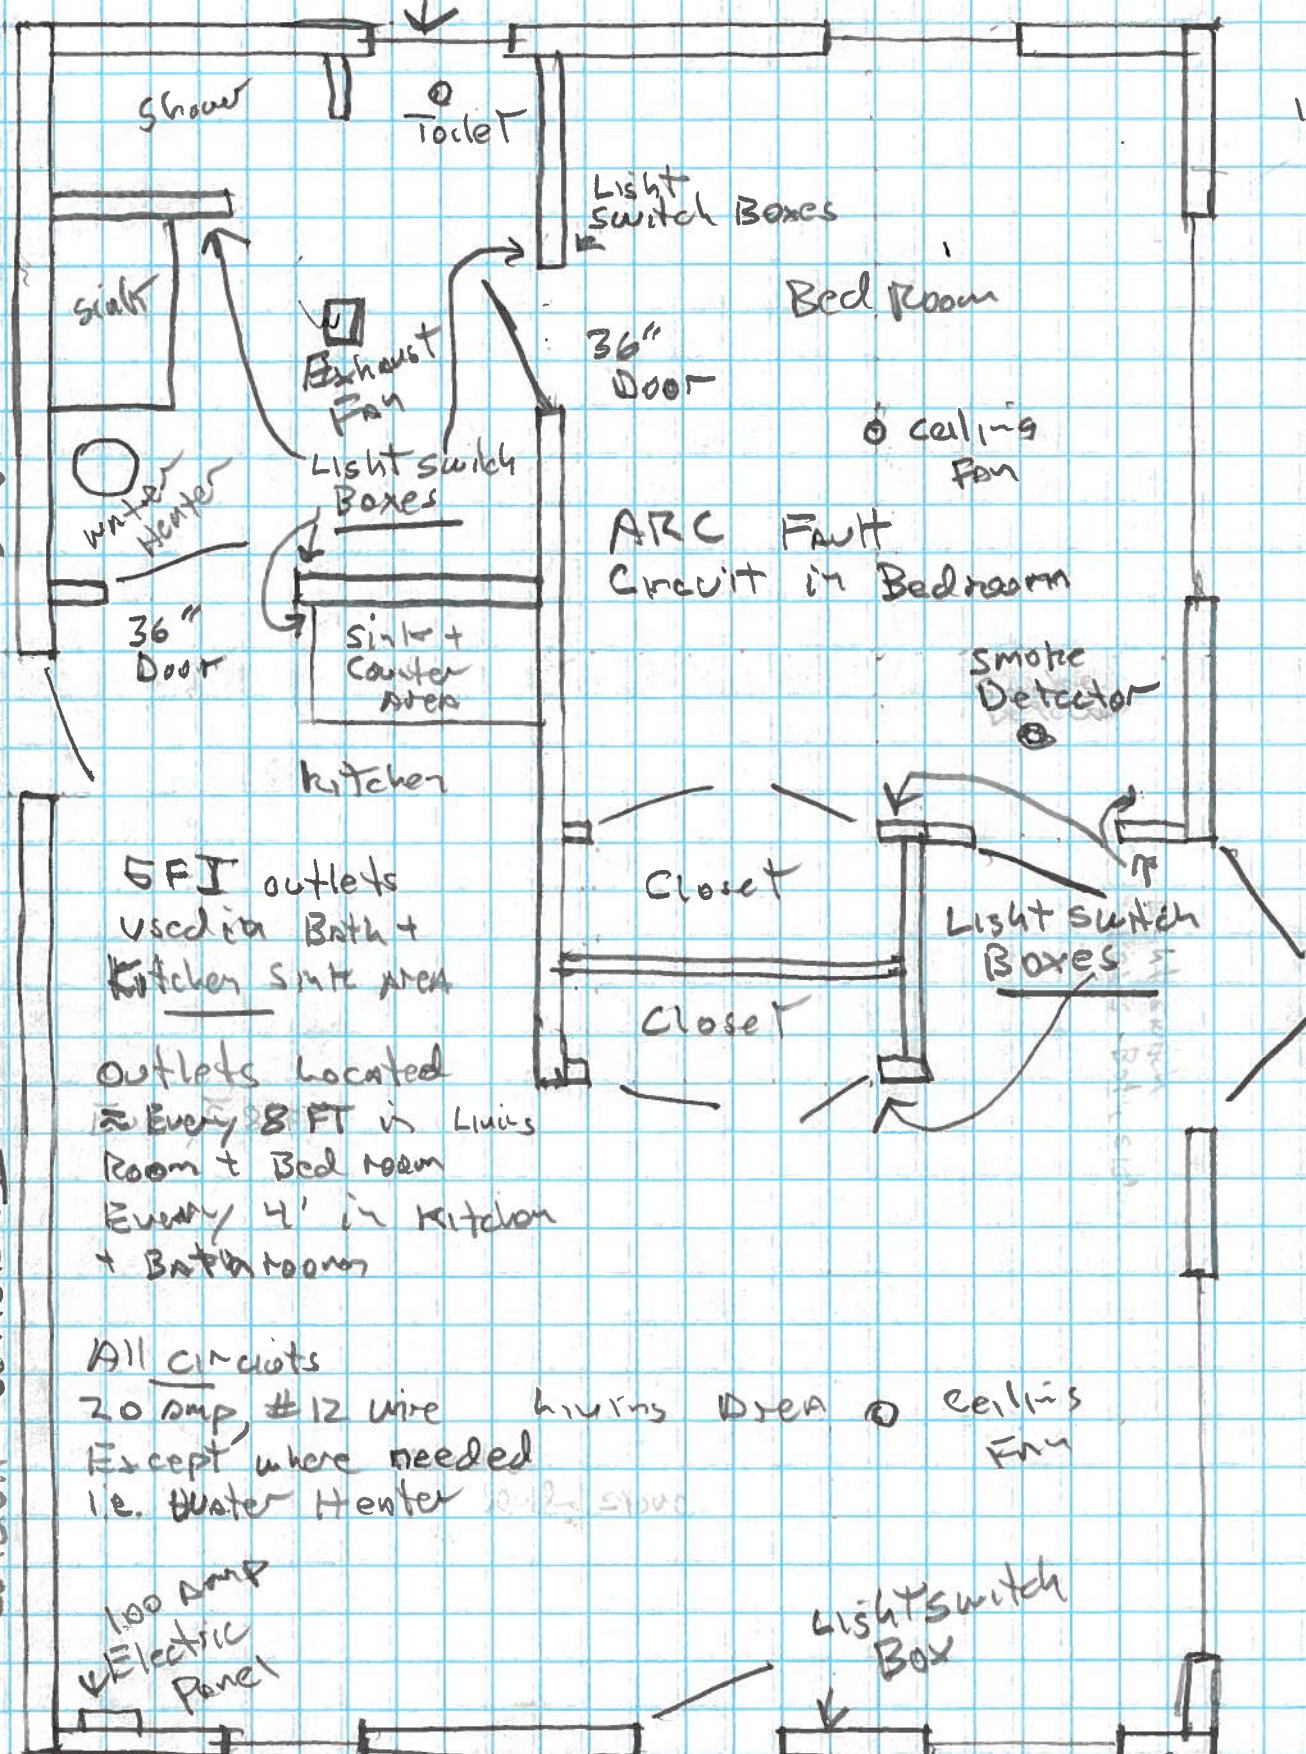 Shower
Toilet
Light
Switch Boxes
Sink
Bed Room
Exhaust
Fan
36"
Door
Ceiling
Fan
Light Swich
Boxes
Water
Heater
ARC Fault
Circuit in Bedroom
36"
Door
Sink +
Counter
Area
Smoke
Detector
Kitchen
GFI outlets
used in Bath +
Kitchen Sink Area
Closet
Light Switch
Boxes
Closet
Outlets Located
≈ Every 8 FT in Living
Room + Bed room
Every 4' in Kitchen
+ Bathroom
All circuits
20 Amp, #12 wire
Except where needed
i.e. Water Heater
Living Area
Ceiling
Fan
100 Amp
Electric
Panel
Light Switch
Box